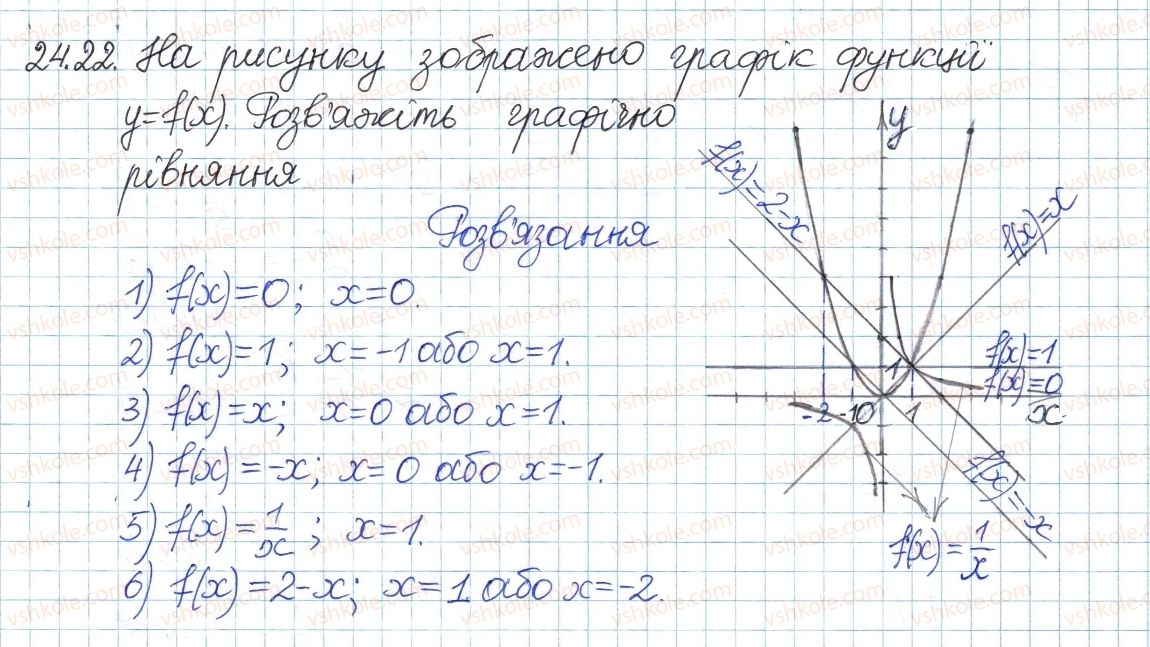 24.22. На рисунку зображено графік функції
y=f(x). Розв'яжіть графічно
рівняння
Розв'язання
1) f(x)=0; x=0.
2) f(x)=1; x=-1 або x=1.
3) f(x)=x; x=0 або x=1.
4) f(x)=-x; x=0 або x=-1.
5) f(x)=1/x; x=1.
6) f(x)=2-x; x=1 або x=-2.
y
f(x)=2-x
f(x)=x
f(x)=1
f(x)=0
1
-2 -1 0 1 x
f(x)=-x
f(x)=1/x
vshkole.com